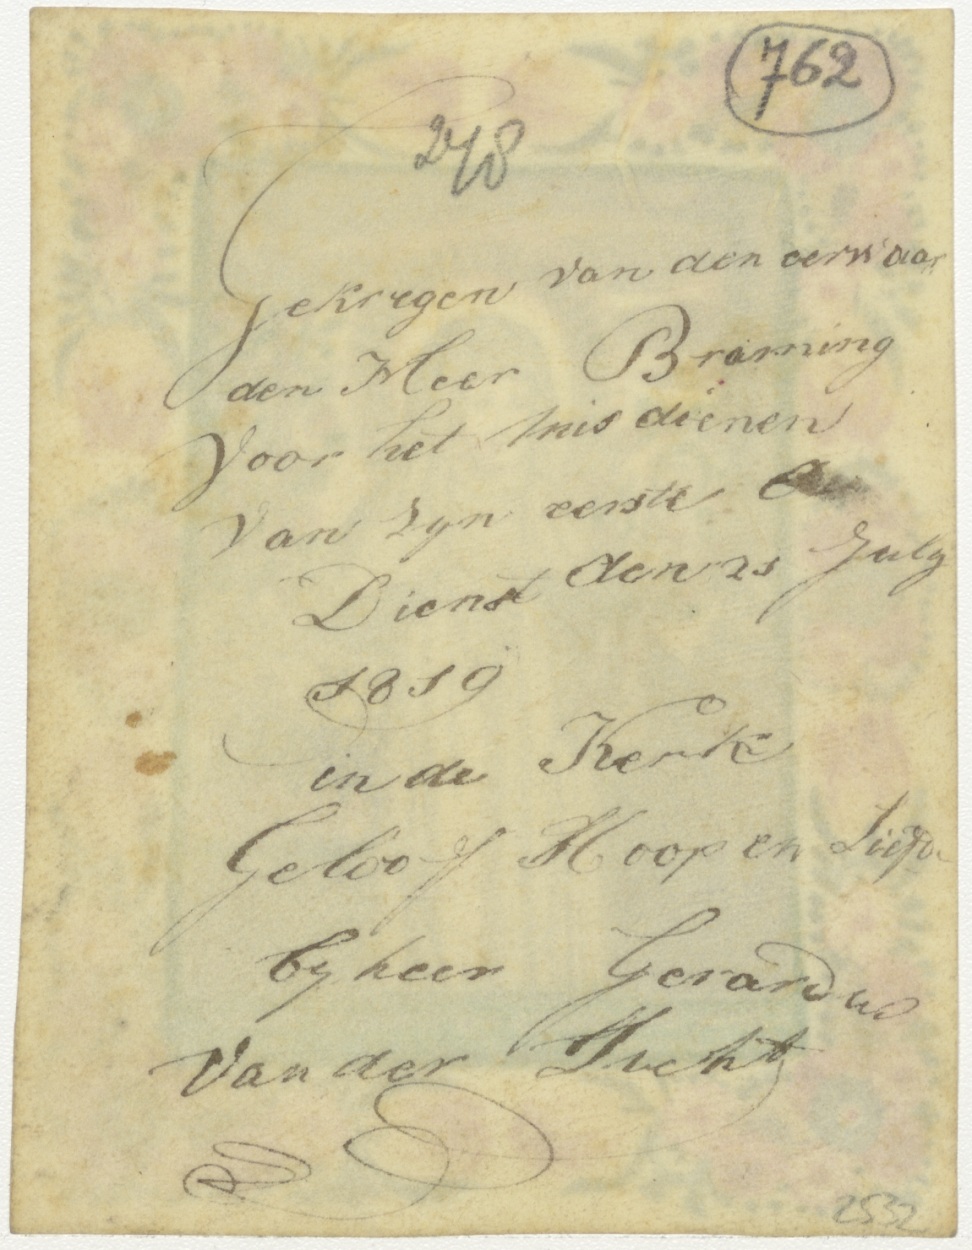 762
248
Gekregen van den eerwaar
den Heer Braming
Voor het mis dienen
Van zyn eerste
Dienst den 25 July
1819
in de Kerk
Geloof Hoop en Liefde
by heer Gerardus
Van der Lucht
2532